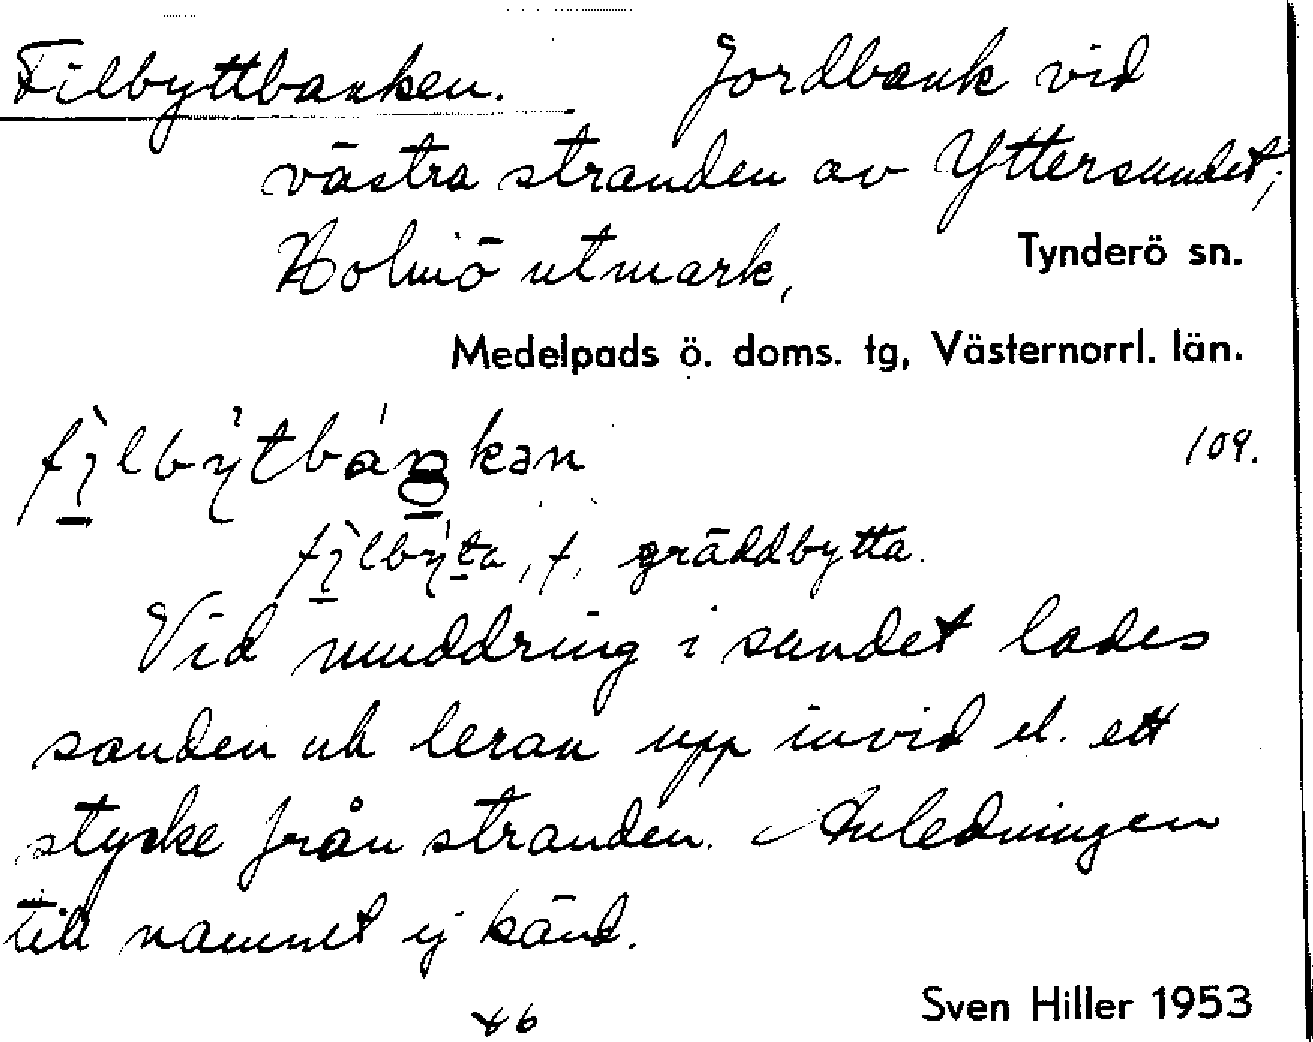 Filbyttbanken. Jordbank vid
västra stranden av Yttersundet;
Holmö utmark, Tynderö sn.
Medelpads ö. doms. tg, Västernorrl. län.
109.
gräddbytta.
Vid muddring i sundet lades
sanden och leran upp invid el. ett
stycke från stranden. Anledningen
till namnet ej känd.
Sven Hiller 1953